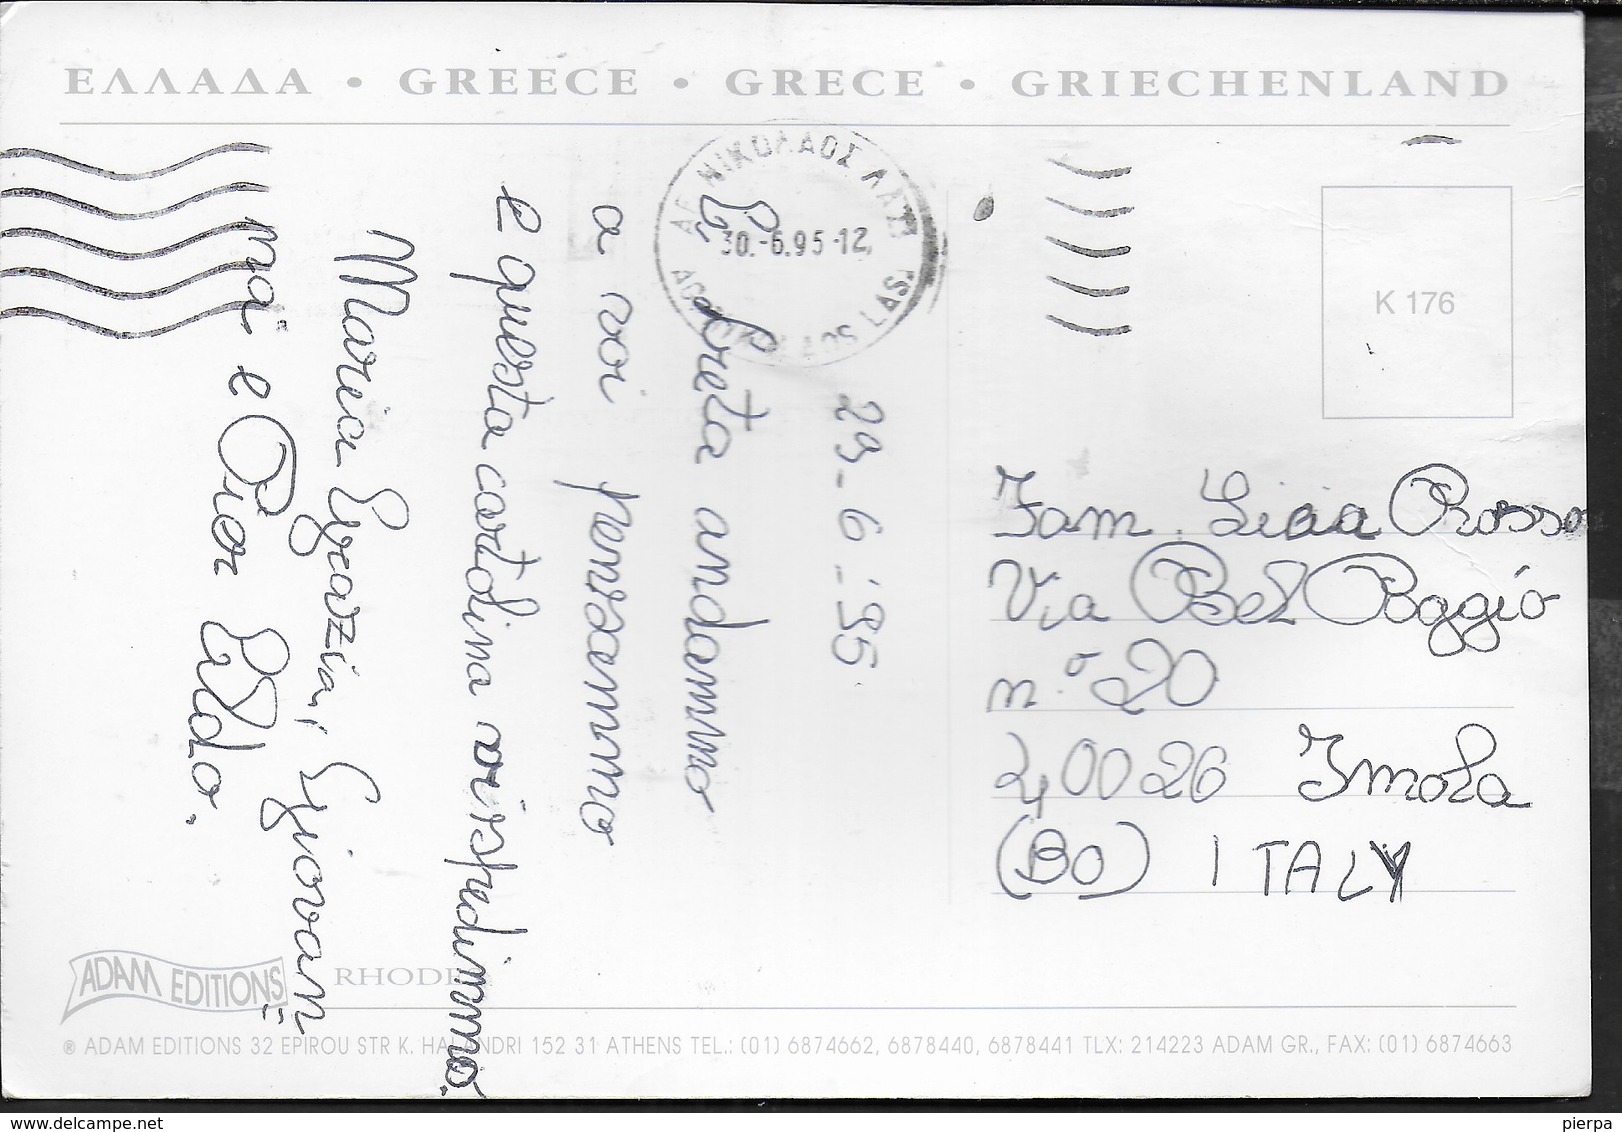 ΕΛΛΑΔΑ • GREECE • GRECE • GRIECHENLAND
ΑΓ. ΝΙΚΟΛΑΟΣ ΛΑΣ
30.-6.95-12
NIKOLAOS LAS
K 176
29-6-'95
a Creta andammo
a voi pensammo
e questa cartolina vi spedimmo.
Maria Grazia, Giovan=
na e Pier Aldo.
Fam. Licia Rosso
Via Bel Poggio
n° 20
40026 Imola
(BO) ITALY
ADAM EDITIONS
RHODE
® ADAM EDITIONS 32 EPIROU STR K. HALANDRI 152 31 ATHENS TEL.: (01) 6874662, 6878440, 6878441 TLX: 214223 ADAM GR., FAX: (01) 6874663
www.delcampe.net
pierpa